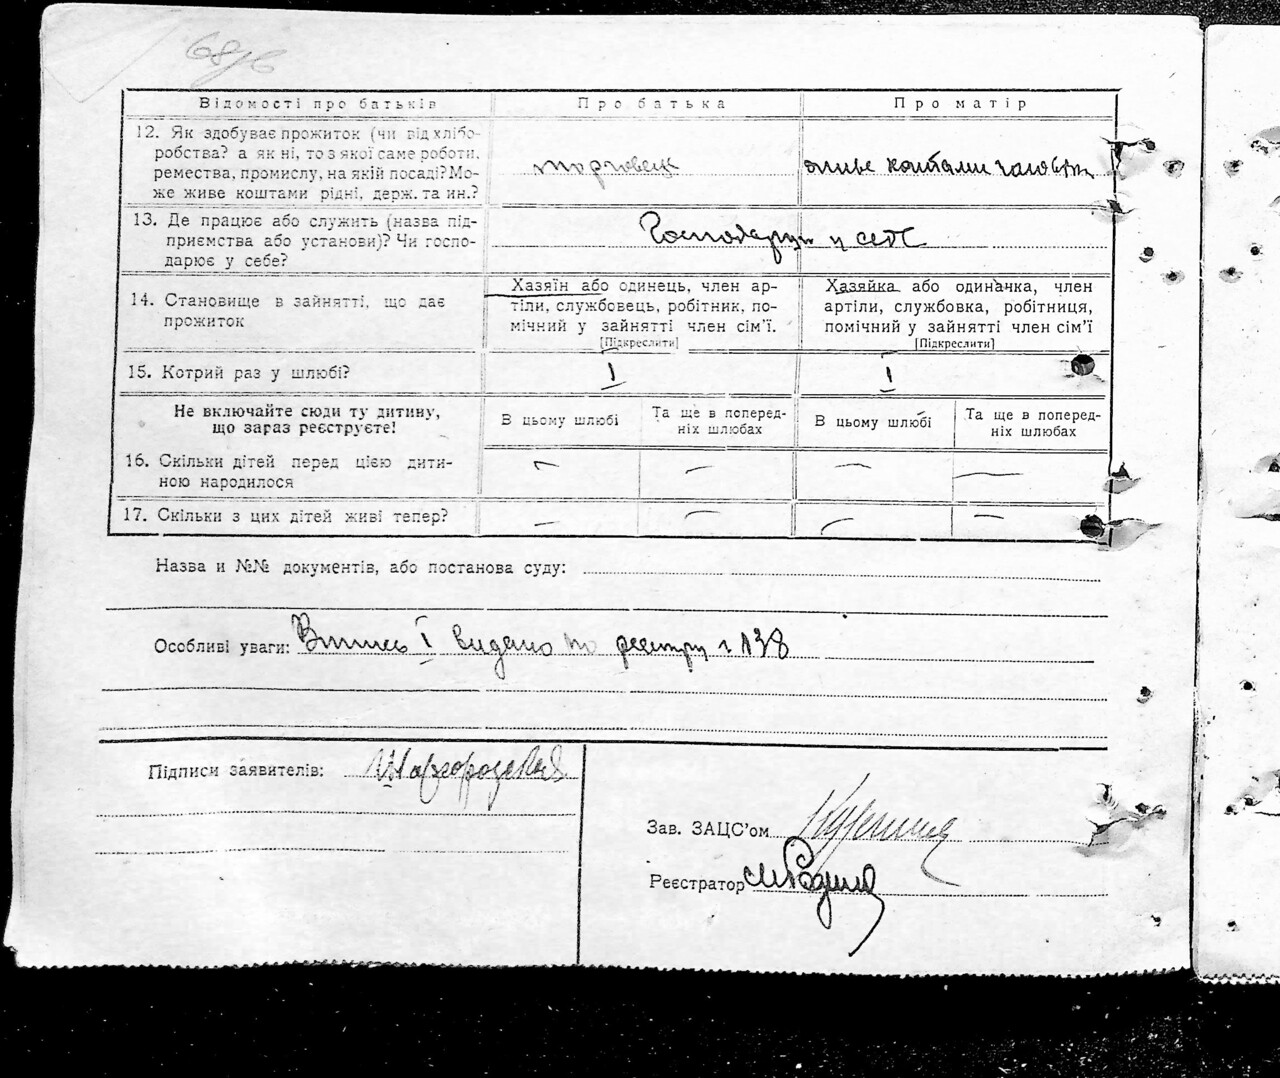 68зв
Відомості про батьків Про батька Про матір
12. Як здобуває прожиток (чи від хлібо-
робства? а як ні, то з якої саме роботи,
ремества, промислу, на якій посаді? Мо-
же живе коштами рідні, держ. та ин.?
торговець
живе коштами чоловіка
13. Де працює або служить (назва під-
приємства або установи)? Чи госпо-
дарює у себе?
Господарує у себе
14. Становище в зайнятті, що дає
прожиток
Хазяїн або одинець, член ар-
тіли, службовець, робітник, по-
мічний у зайнятті член сім'ї.
[Підкреслити]
Хазяйка або одиначка, член
артіли, службовка, робітниця,
помічний у зайнятті член сім'ї
[Підкреслити]
15. Котрий раз у шлюбі? I I
Не включайте сюди ту дитину,
що зараз реєструєте!
В цьому шлюбі
Та ще в поперед-
ніх шлюбах
В цьому шлюбі
Та ще в поперед-
ніх шлюбах
16. Скільки дітей перед цією дити-
ною народилося
— — — —
17. Скільки з цих дітей живі тепер? — — — —
Назва и №№ документів, або постанова суду:
Особливі уваги: Випись I видано по реєстру 138
Підписи заявителів:
Зав. ЗАЦС'ом
Реєстратор